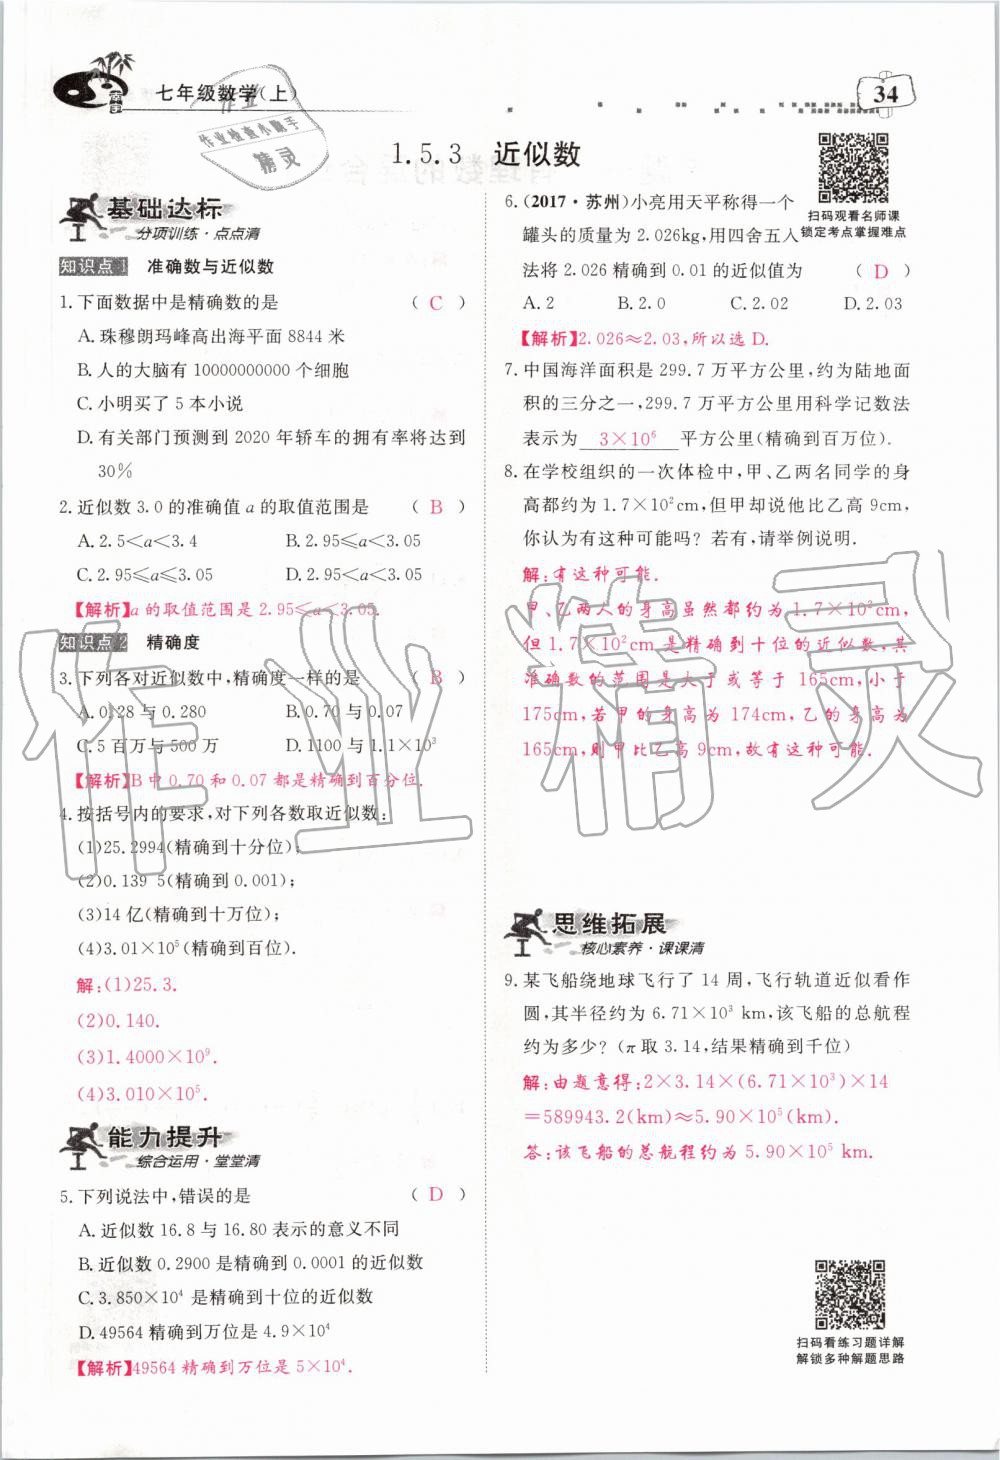 七年级数学(上)
34
作业
作业检查小助手
精灵
1.5.3 近似数
基础达标
分项训练·点点清
知识点1 准确数与近似数
1.下面数据中是精确数的是 ( C )
A.珠穆朗玛峰高出海平面 8844 米
B.人的大脑有 10000000000 个细胞
C.小明买了 5 本小说
D.有关部门预测到 2020 年轿车的拥有率将达到
30%
2.近似数 3.0 的准确值 a 的取值范围是 ( B )
A.2.5<a<3.4 B.2.95⩽a<3.05
C.2.95⩽a⩽3.05 D.2.95<a<3.05
【解析】a 的取值范围是 2.95⩽a<3.05.
知识点2 精确度
3.下列各对近似数中,精确度一样的是 ( B )
A.0.28 与 0.280 B.0.70 与 0.07
C.5 百万与 500 万 D.1100 与 1.1×10³
【解析】B 中 0.70 和 0.07 都是精确到百分位.
4.按括号内的要求,对下列各数取近似数:
(1)25.2994(精确到十分位);
(2)0.139 5(精确到 0.001);
(3)14 亿(精确到十万位);
(4)3.01×10⁵(精确到百位).
解:(1)25.3.
(2)0.140.
(3)1.4000×10⁹.
(4)3.010×10⁵.
能力提升
综合运用·堂堂清
5.下列说法中,错误的是 ( D )
A.近似数 16.8 与 16.80 表示的意义不同
B.近似数 0.2900 是精确到 0.0001 的近似数
C.3.850×10⁴ 是精确到十位的近似数
D.49564 精确到万位是 4.9×10⁴
【解析】49564 精确到万位是 5×10⁴.
6.(2017·苏州)小亮用天平称得一个
罐头的质量为 2.026kg,用四舍五入
法将 2.026 精确到 0.01 的近似值为 ( D )
A.2 B.2.0 C.2.02 D.2.03
【解析】2.026≈2.03,所以选 D.
扫码观看名师课
锁定考点掌握难点
7.中国海洋面积是 299.7 万平方公里,约为陆地面
积的三分之一,299.7 万平方公里用科学记数法
表示为 3×10⁶ 平方公里(精确到百万位).
8.在学校组织的一次体检中,甲、乙两名同学的身
高都约为 1.7×10²cm,但甲却说他比乙高 9cm,
你认为有这种可能吗?若有,请举例说明.
解:有这种可能.
甲、乙两人的身高虽然都约为 1.7×10²cm,
但 1.7×10²cm 是精确到十位的近似数,其
准确数的范围是大于或等于 165cm,小于
175cm,若甲的身高为 174cm,乙的身高为
165cm,则甲比乙高 9cm,故有这种可能.
思维拓展
核心素养·课课清
9.某飞船绕地球飞行了 14 周,飞行轨道近似看作
圆,其半径约为 6.71×10³ km,该飞船的总航程
约为多少?(π 取 3.14,结果精确到千位)
解:由题意得:2×3.14×(6.71×10³)×14
=589943.2(km)≈5.90×10⁵(km).
答:该飞船的总航程约为 5.90×10⁵ km.
扫码看练习题详解
解锁多种解题思路
作业精灵